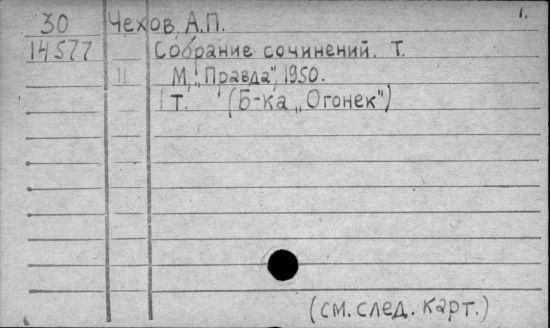 1.
30 Чехов, А.П.
14577 Собрание сочинений. Т.
М., "Правда", 1950.
Т. (Б-ка „Огонек")
(см. след. карт.)